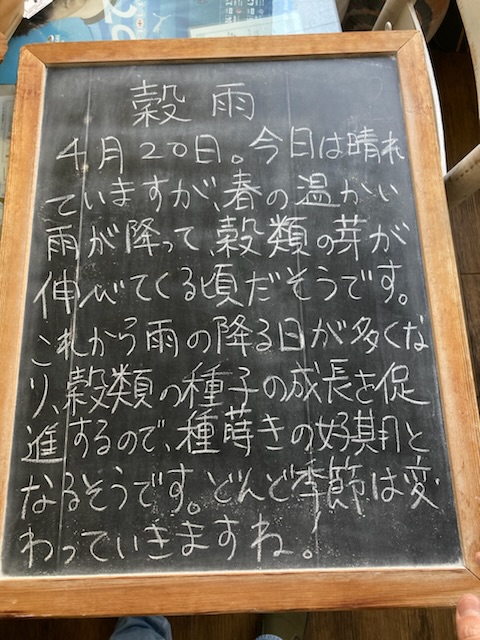 穀雨
4月20日。今日は晴れ
ていますが、春の温かい
雨が降って、穀類の芽が
伸びてくる頃だそうです。
これから雨の降る日が多くな
り、穀類の種子の成長を促
進するので、種蒔きの好期と
なるそうです。どんど季節は変
わっていきますね。